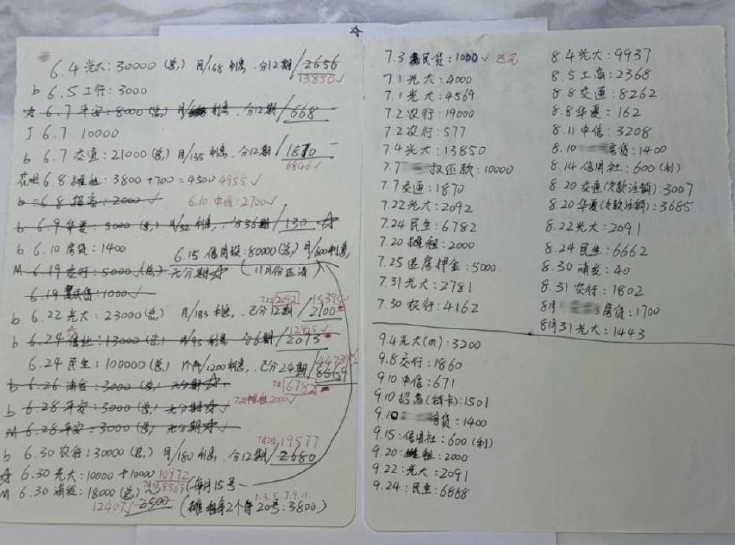 6.4 光大:30000(总) 月/168利息、分12期/2656
13850✓
b 6.5 工行:3000
6.7 平安:8000(总) 分12期/668
J 6.7 10000
b 6.7 交通:21000(总) 月/135利息、分12期/1870
6846✓
6.8 摊租:3800+700=4500 4955✓
b 6.8 招商:2000✓ 6.10 中信:2700✓
b 6.9 华夏:5000(总) 月/52利息、分36期/130
b 6.10 房贷:1400 6.15 信用社:80000(总) 月/600利息
M 6.19 交行:5000(总) 无分期☆(11月份还清)
6.19 惠民贷:1000✓
b 6.22 光大:23000(总) 月/183利息、已分12期/2100
7.22/2092
b 6.24 信社:13000(总) 月/95利息、分6期/2073
12925✓
6.24 民生:100000(总) 月/1200利息、已分24期/8669
b 6.26 浦发:3000(总) 无分期☆
7月/6782
b 6.28 平安:5000(总) 无分期☆ 7.20摊租2000✓
M 6.28 平安:3000(总) 无分期☆
b 6.30 农行:30000(总) 月/180利息、分12期/2680
19577
☆ 6.30 光大:10000+10000 10972
M 6.30 浦发:18000(总) (每月15号
12407/2500 (摊租每2个月20号:3800)
1.3.5.7.9.11
7.3 惠民贷:1000✓ 还完
7.1 光大:4000
7.1 光大:4569
7.2 农行:19000
7.2 农行:577
7.4 光大:13850
7.7 叔还款:10000
7.7 交通:1870
7.22 光大:2092
7.24 民生:6782
7.20 摊租:2000
7.25 退房押金:5000
7.31 光大:2781
7.30 农行:4162
8.4 光大:9937
8.5 工商:2368
8.8 交通:8262
8.8 华夏:162
8.11 中信:3208
8.10 房贷:1400
8.14 信用社:600(利)
8.20 交通(欠款注销)3007
8.20 华夏(欠款注销):3685
8.22 光大:2091
8.24 民生:6662
8.30 浦发:40
8.31 农行:1802
8月 房贷:1700
8月31 光大:1443
9.4 光大(m):3200
9.8 交行:1860
9.10 中信:671
9.10 招商(销卡):1501
9.10 房贷:1400
9.15:信用社:600(利)
9.20:摊租:2000
9.22:光大:2091
9.24:民生:6888